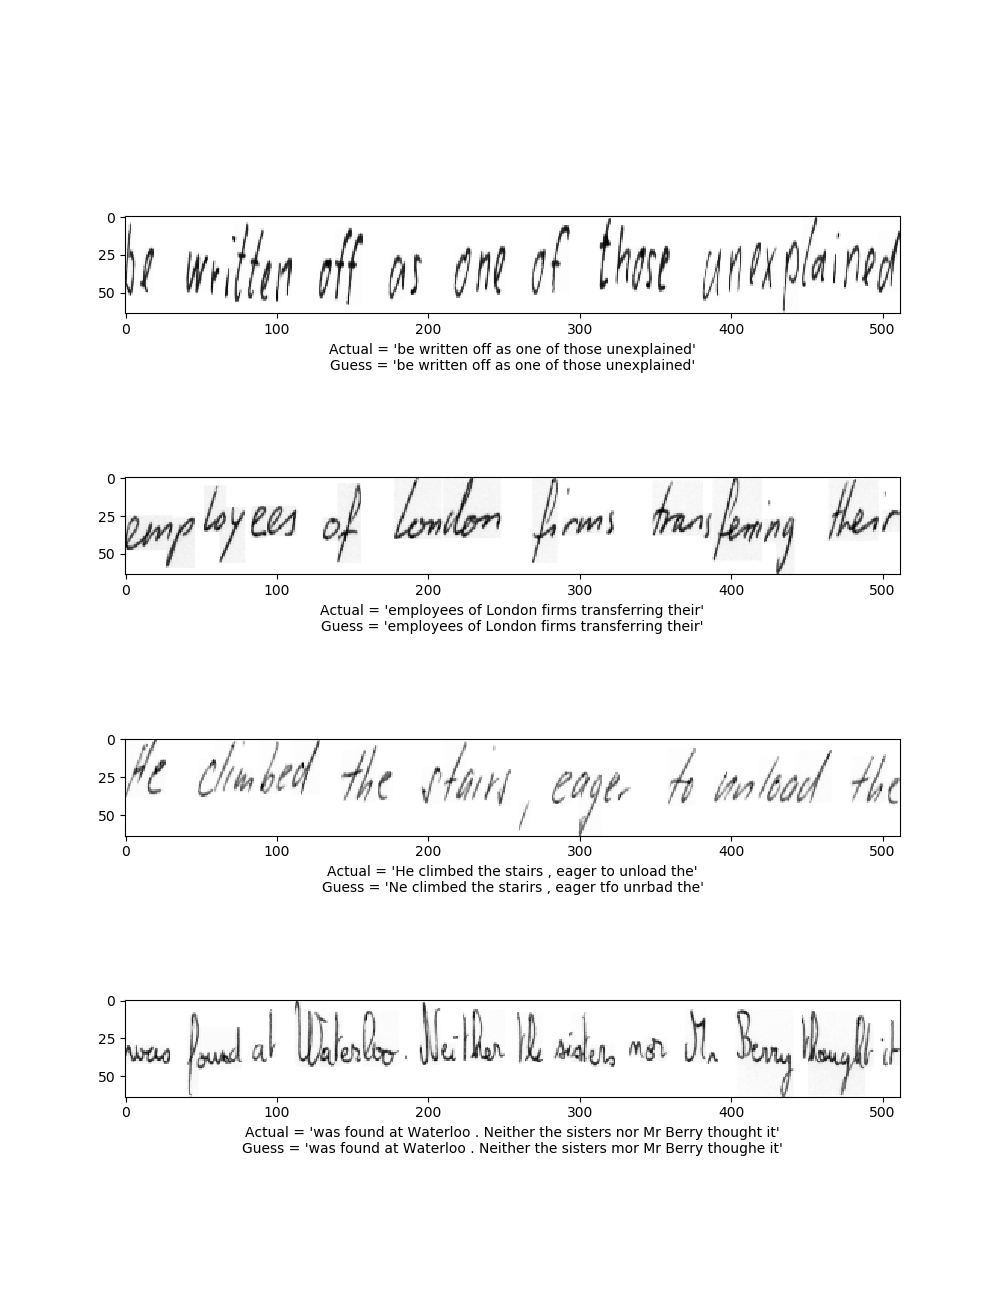 0
25
50
be written off as one of those unexplained
0 100 200 300 400 500
Actual = 'be written off as one of those unexplained'
Guess = 'be written off as one of those unexplained'
0
25
50
employees of London firms transferring their
0 100 200 300 400 500
Actual = 'employees of London firms transferring their'
Guess = 'employees of London firms transferring their'
0
25
50
He climbed the stairs, eager to unload the
0 100 200 300 400 500
Actual = 'He climbed the stairs , eager to unload the'
Guess = 'Ne climbed the starirs , eager tfo unrbad the'
0
25
50
was found at Waterloo. Neither the sisters nor Mr Berry thought it
0 100 200 300 400 500
Actual = 'was found at Waterloo . Neither the sisters nor Mr Berry thought it'
Guess = 'was found at Waterloo . Neither the sisters mor Mr Berry thoughe it'